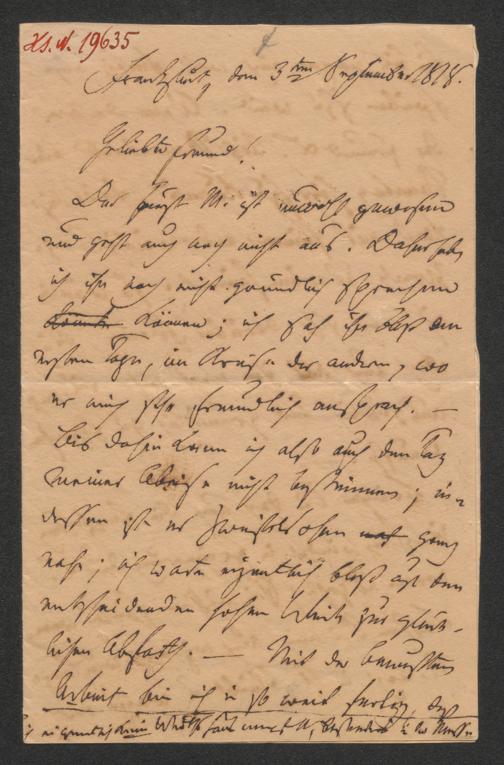 H.S.N. 19635
Frankfurt, den 3ten September 1818.
Geliebter Freund!
Der Fürst M. ist unwohl gewesen
und geht auch noch nicht aus. Daher habe
ich ihn noch nicht gründlich sprechen
können; ich sah ihn bloß den
ersten Tag, im Kreise der andern, wo
er mich sehr freundlich ansprach. —
Bis dahin kann ich also auch den Tag
meiner Abreise nicht bestimmen; in-
dessen ist er zweifelsohne ganz
nahe; ich warte eigentlich bloß auf den
entscheidenden hohen Wink zur glück-
lichen Abfahrt. — Mit der bewußten
Arbeit bin ich in so weit fertig, daß